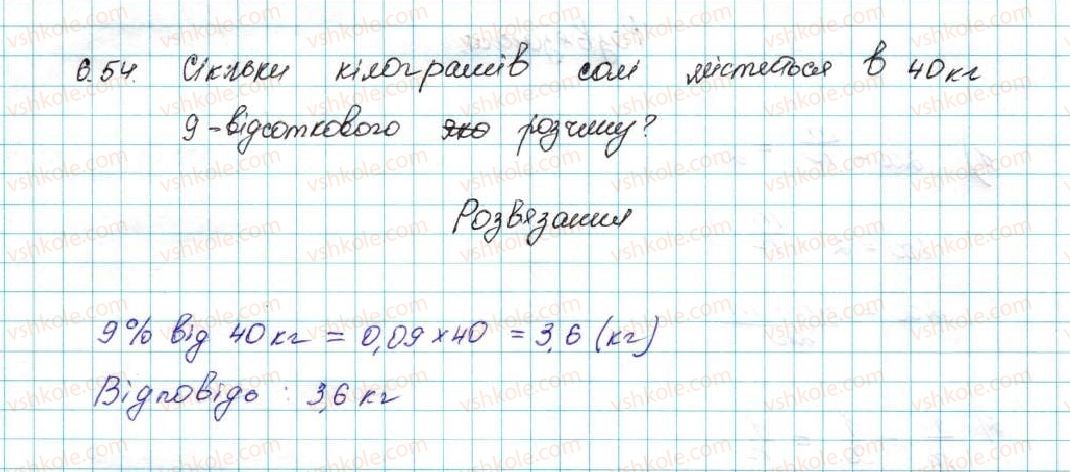 6.54. Скільки кілограмів солі міститься в 40 кг
9-відсоткового яко розчину?
Розвязання
9% від 40 кг = 0,09 × 40 = 3,6 (кг)
Відповідь : 3,6 кг